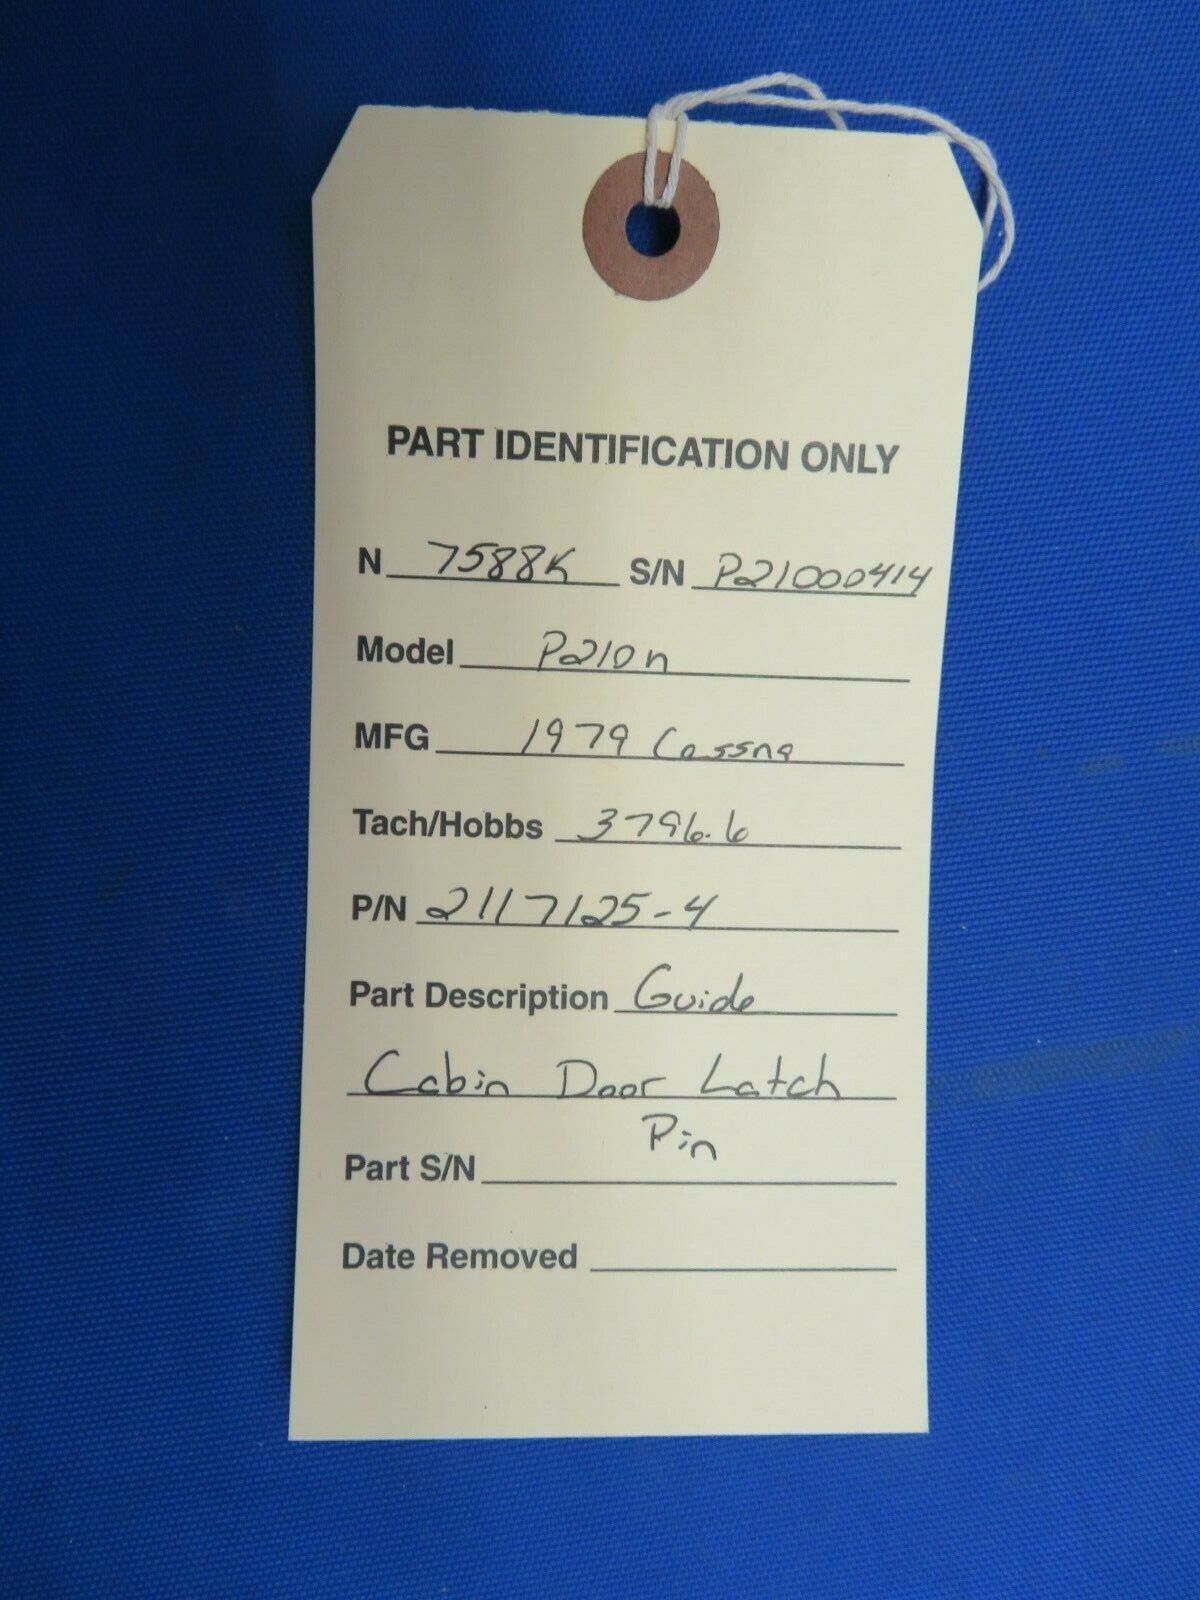 PART IDENTIFICATION ONLY
N 7588K S/N P21000414
Model P210n
MFG 1979 Cessna
Tach/Hobbs 3796.6
P/N 2117125-4
Part Description Guide
Cabin Door Latch
Pin
Part S/N
Date Removed